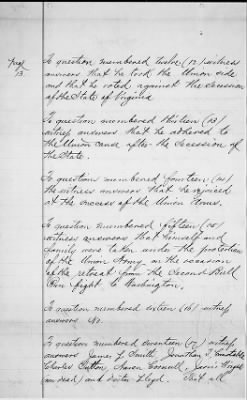 Page
13.
To question numbered twelve (12) witness
answers that he took the Union side
and that he voted against the Secession
of the State of Virginia
To question numbered thirteen (13)
witness answers that he adhered to
the Union cause after the Secession of
the State.
To question numbered fourteen (14)
the witness answers that he rejoiced
at the success of the Union Arms.
To question numbered fifteen (15)
witness answers that himself and
family were taken under the protection
of the Union Army on the occasion
of the retreat from the Second Bull
Run fight to Washington.
To question numbered sixteen (16) witness
answers No.
To question numbered seventeen (17) witness
answers James L. Smith, Jonathan T.
Charles Aaron
(now dead) and Lloyd. That all